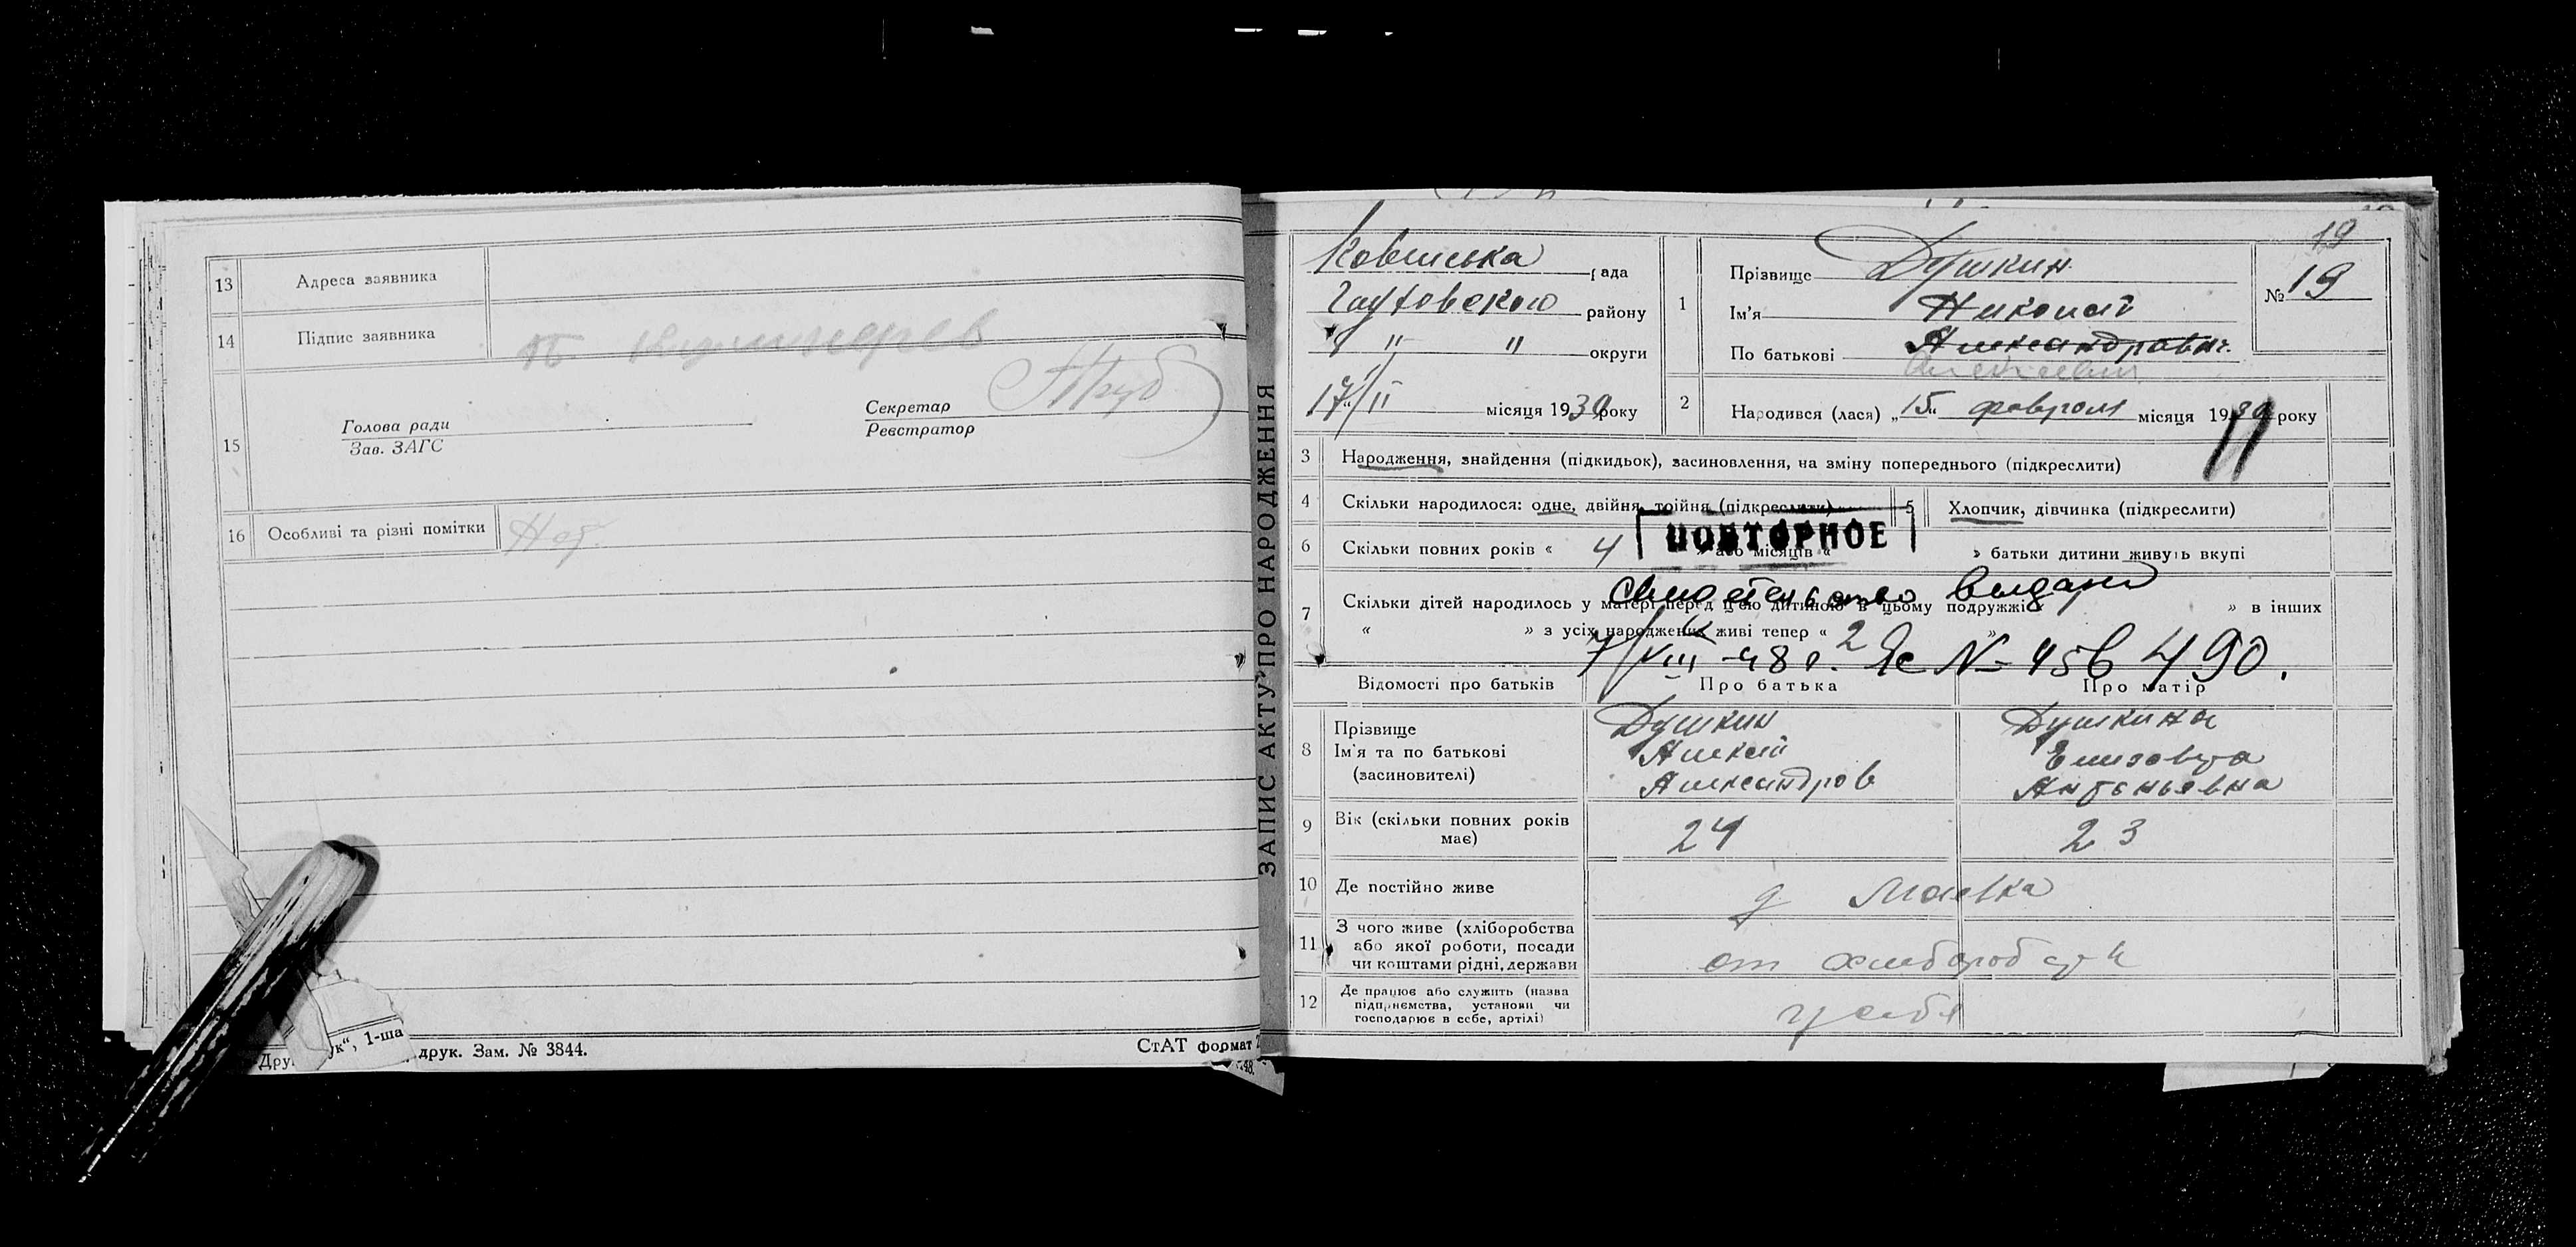 13 Адреса заявника
14 Підпис заявника
15 Голова ради
Зав. ЗАГС
Секретар
Реєстратор
16 Особливі та різні помітки Нет.
друк. Зам. № 3844.
СтАТ формат
ЗАПИС АКТУ ПРО НАРОДЖЕННЯ
19
рада
району
" " округи
17/II місяця 1930 року
1 Прізвище Душкин
Ім'я Николай
По батькові Александрович
Алексеевич
№ 19
2 Народився (лася) „15“ февраля місяця 1930 року
3 Народження, знайдення (підкидьок), засиновлення, на зміну попереднього (підкреслити)
4 Скільки народилося: одне, двійня, трійня (підкреслити)
5 Хлопчик, дівчинка (підкреслити)
ПОВТОРНОЕ
6 Скільки повних років « 4 » або місяців « » батьки дитини живуть вкупі
свидетельство выдано
7 Скільки дітей народилось у матері перед цією дитиною в цьому подружжі « » в інших
« » з усіх народжених живі тепер « 2 »
7/VIII-48 г. № 456490.
Відомості про батьків Про батька Про матір
8 Прізвище
Ім'я та по батькові
(засиновителі)
Душкин
Алексей
Александров
Душкина
Елизовета
Антоньевна
9 Вік (скільки повних років має) 24 23
10 Де постійно живе д Маевка
11 З чого живе (хліборобства
або якої роботи, посади
чи коштами рідні, держави
от
12 Де працює або служить (назва
підприємства, установи чи
господарює в себе, артілі)
у себя